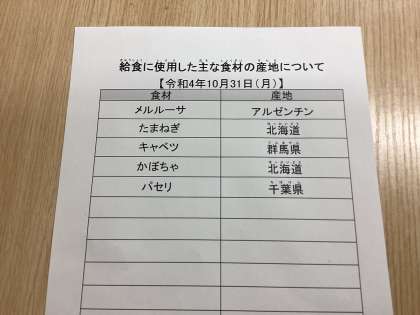 給食に使用した主な食材の産地について
【令和4年10月31日（月）】
食材 産地
メルルーサ アルゼンチン
たまねぎ 北海道
キャベツ 群馬県
かぼちゃ 北海道
パセリ 千葉県